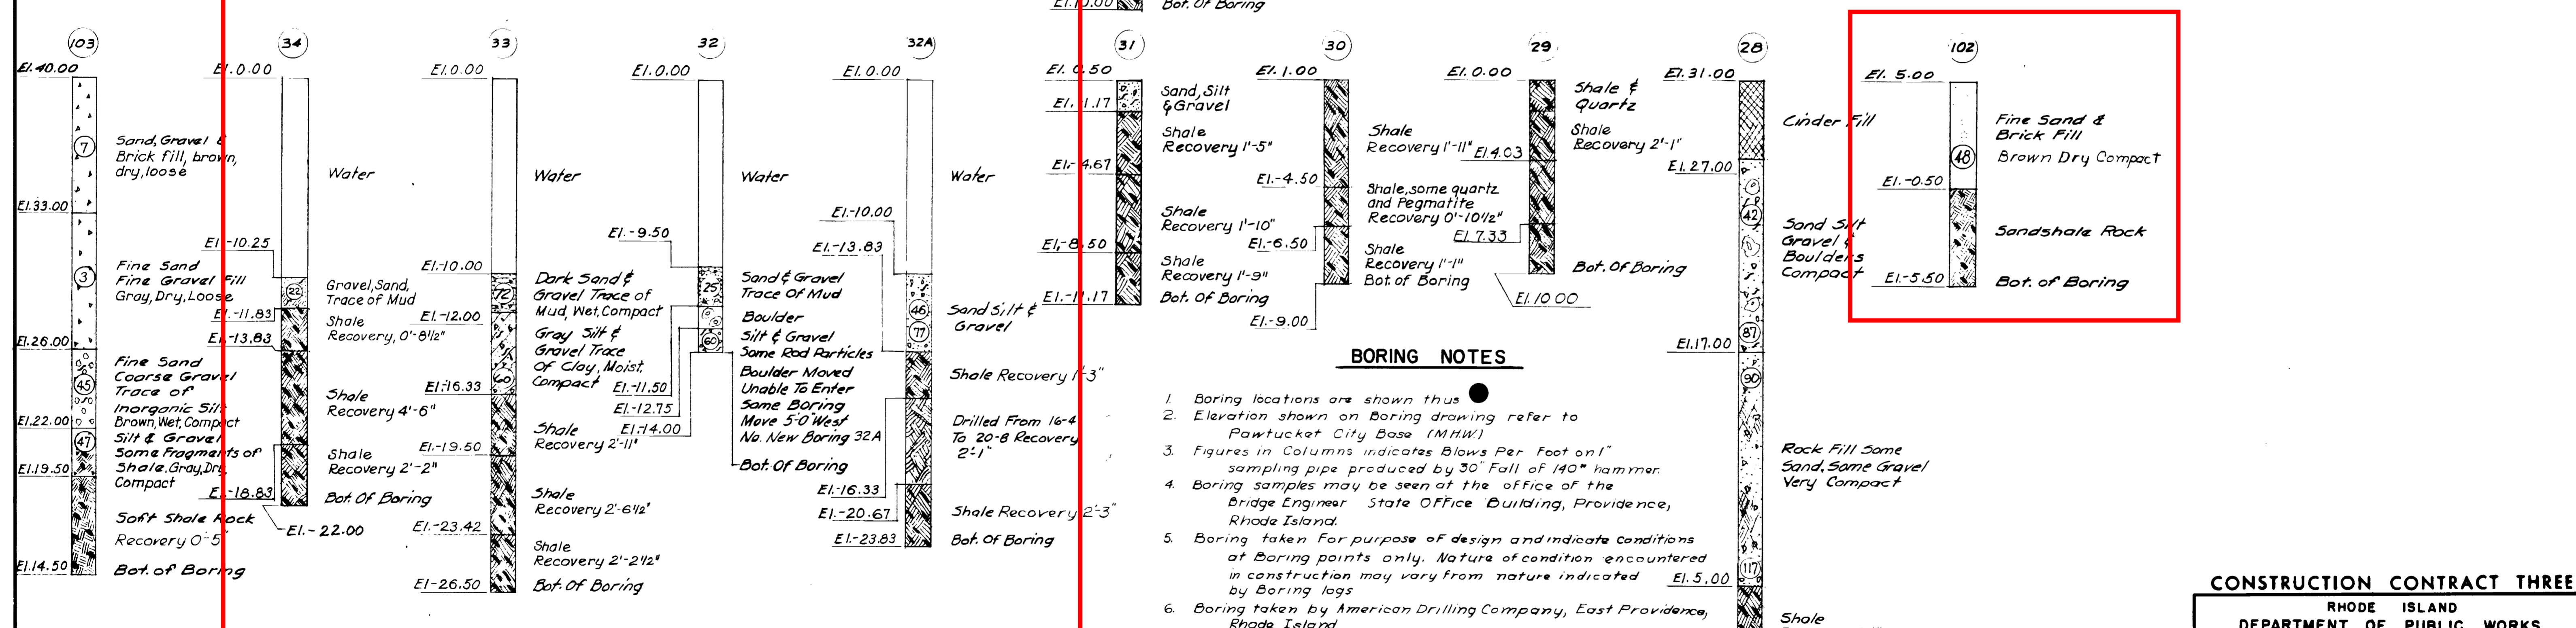 El.10.00 Bot. Of Boring
103
El.40.00
7
Sand, Gravel &
Brick fill, brown,
dry, loose
El.33.00
3
Fine Sand
Fine Gravel Fill
Gray, Dry, Loose
El.26.00
45
Fine Sand
Coarse Gravel
Trace of
Inorganic Silt
Brown, Wet, Compact
El.22.00
47
Silt & Gravel
Some Fragments of
Shale, Gray, Dry
Compact
El.19.50
Soft Shale Rock
Recovery 0'-5"
El.14.50
Bot. of Boring
34
El.0.00
Water
El.-10.25
22
Gravel, Sand,
Trace of Mud
El.-11.83
Shale
Recovery, 0'-8½"
El.-13.83
Shale
Recovery 4'-6"
El.-18.83
Shale
Recovery 2'-2"
Bot. Of Boring
El.-22.00
33
El.0.00
Water
El.-10.00
72
Dark Sand &
Gravel Trace of
Mud, Wet, Compact
El.-12.00
Gray Silt &
Gravel Trace
Of Clay, Moist,
Compact
60
El.-16.33
Shale
Recovery 2'-11"
El.-19.50
Shale
Recovery 2'-6½"
El.-23.42
Shale
Recovery 2'-2½"
El-26.50
Bot. Of Boring
32
El.0.00
Water
El.-9.50
25
Sand & Gravel
Trace Of Mud
El.-11.50
Boulder
El.-12.75
60
Silt & Gravel
Some Rod Particles
Boulder Moved
Unable To Enter
Same Boring
Move 5'-0" West
No. New Boring 32A
El.-14.00
Bot. Of Boring
32A
El.0.00
Water
El.-10.00
46
77
Sand Silt &
Gravel
El.-13.83
Shale Recovery 1'-3"
Drilled From 16-4
To 20-8 Recovery
2'-1"
El.-16.33
El.-20.67
Shale Recovery 2'-3"
El.-23.83
Bot. Of Boring
31
El. 0.50
Sand, Silt
& Gravel
El.-1.17
Shale
Recovery 1'-5"
El.-4.67
Shale
Recovery 1'-10"
El.-8.50
Shale
Recovery 1'-9"
El.-11.17
Bot. Of Boring
30
El.1.00
Shale
Recovery 1'-11"
El.-4.50
Shale, some quartz
and Pegmatite
Recovery 0'-10½"
El.-6.50
Shale
Recovery 1'-1"
Bot. of Boring
El.-9.00
29
El.0.00
Shale &
Quartz
Shale
Recovery 2'-1"
El.4.03
El.7.33
Bot. Of Boring
El.10.00
28
El.31.00
Cinder Fill
El.27.00
42
Sand Silt
Gravel &
Boulders
Compact
87
El.17.00
90
Rock Fill Some
Sand, Some Gravel
Very Compact
117
El.5.00
Shale
102
El. 5.00
Fine Sand &
Brick Fill
48
Brown Dry Compact
El.-0.50
Sandshale Rock
El.-5.50
Bot. of Boring
BORING NOTES
1. Boring locations are shown thus
2. Elevation shown on Boring drawing refer to
Pawtucket City Base (MHW)
3. Figures in Columns indicates Blows Per Foot on 1"
sampling pipe produced by 30" Fall of 140# hammer.
4. Boring samples may be seen at the office of the
Bridge Engineer State Office Building, Providence,
Rhode Island.
5. Boring taken for purpose of design and indicate conditions
at Boring points only. Nature of condition encountered
in construction may vary from nature indicated
by Boring logs
6. Boring taken by American Drilling Company, East Providence,
Rhode Island
CONSTRUCTION CONTRACT THREE
RHODE ISLAND
DEPARTMENT OF PUBLIC WORKS